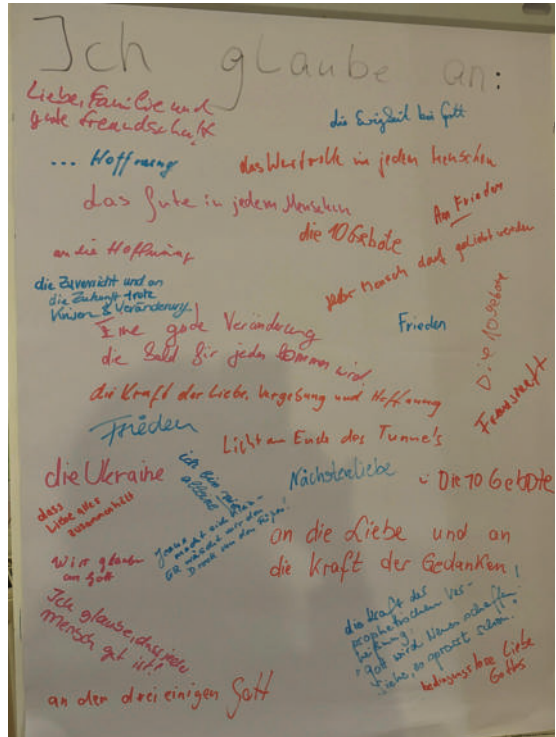 Ich glaube an:
Liebe, Familie und
gute Freundschaft
die Ewigkeit bei Gott
... Hoffnung
das Wertvolle in jeden Menschen
das Gute in jedem Menschen
An Frieden
die 10 Gebote
an die Hoffnung
jeder Mensch darf geliebt werden
die Zuversicht und an
die Zukunft trotz
Krisen & Veränderung!
Frieden
Die 10 Gebote
Eine gute Veränderung
die bald für jeden kommen wird
die Kraft der Liebe, Vergebung und Hoffnung
Freundschaft
Frieden
Licht am Ende des Tunnels
die Ukraine
ich bin nie
alleine
Nächstenliebe
Die 10 Gebote
dass
Liebe alles
zusammenhält
macht sich
ER wäscht mir den
Dreck von den Füßen!
an die Liebe und an
die Kraft der Gedanken!
Wir glauben
an Gott
Ich glaube, dass jeder
mensch gut ist!
die Kraft der
prophetischen Ver-
heißung:
Gott wird Neues schaffen
Siehe, es sprosst schon.
bedingungslose Liebe
Gottes
an den dreieinigen Gott